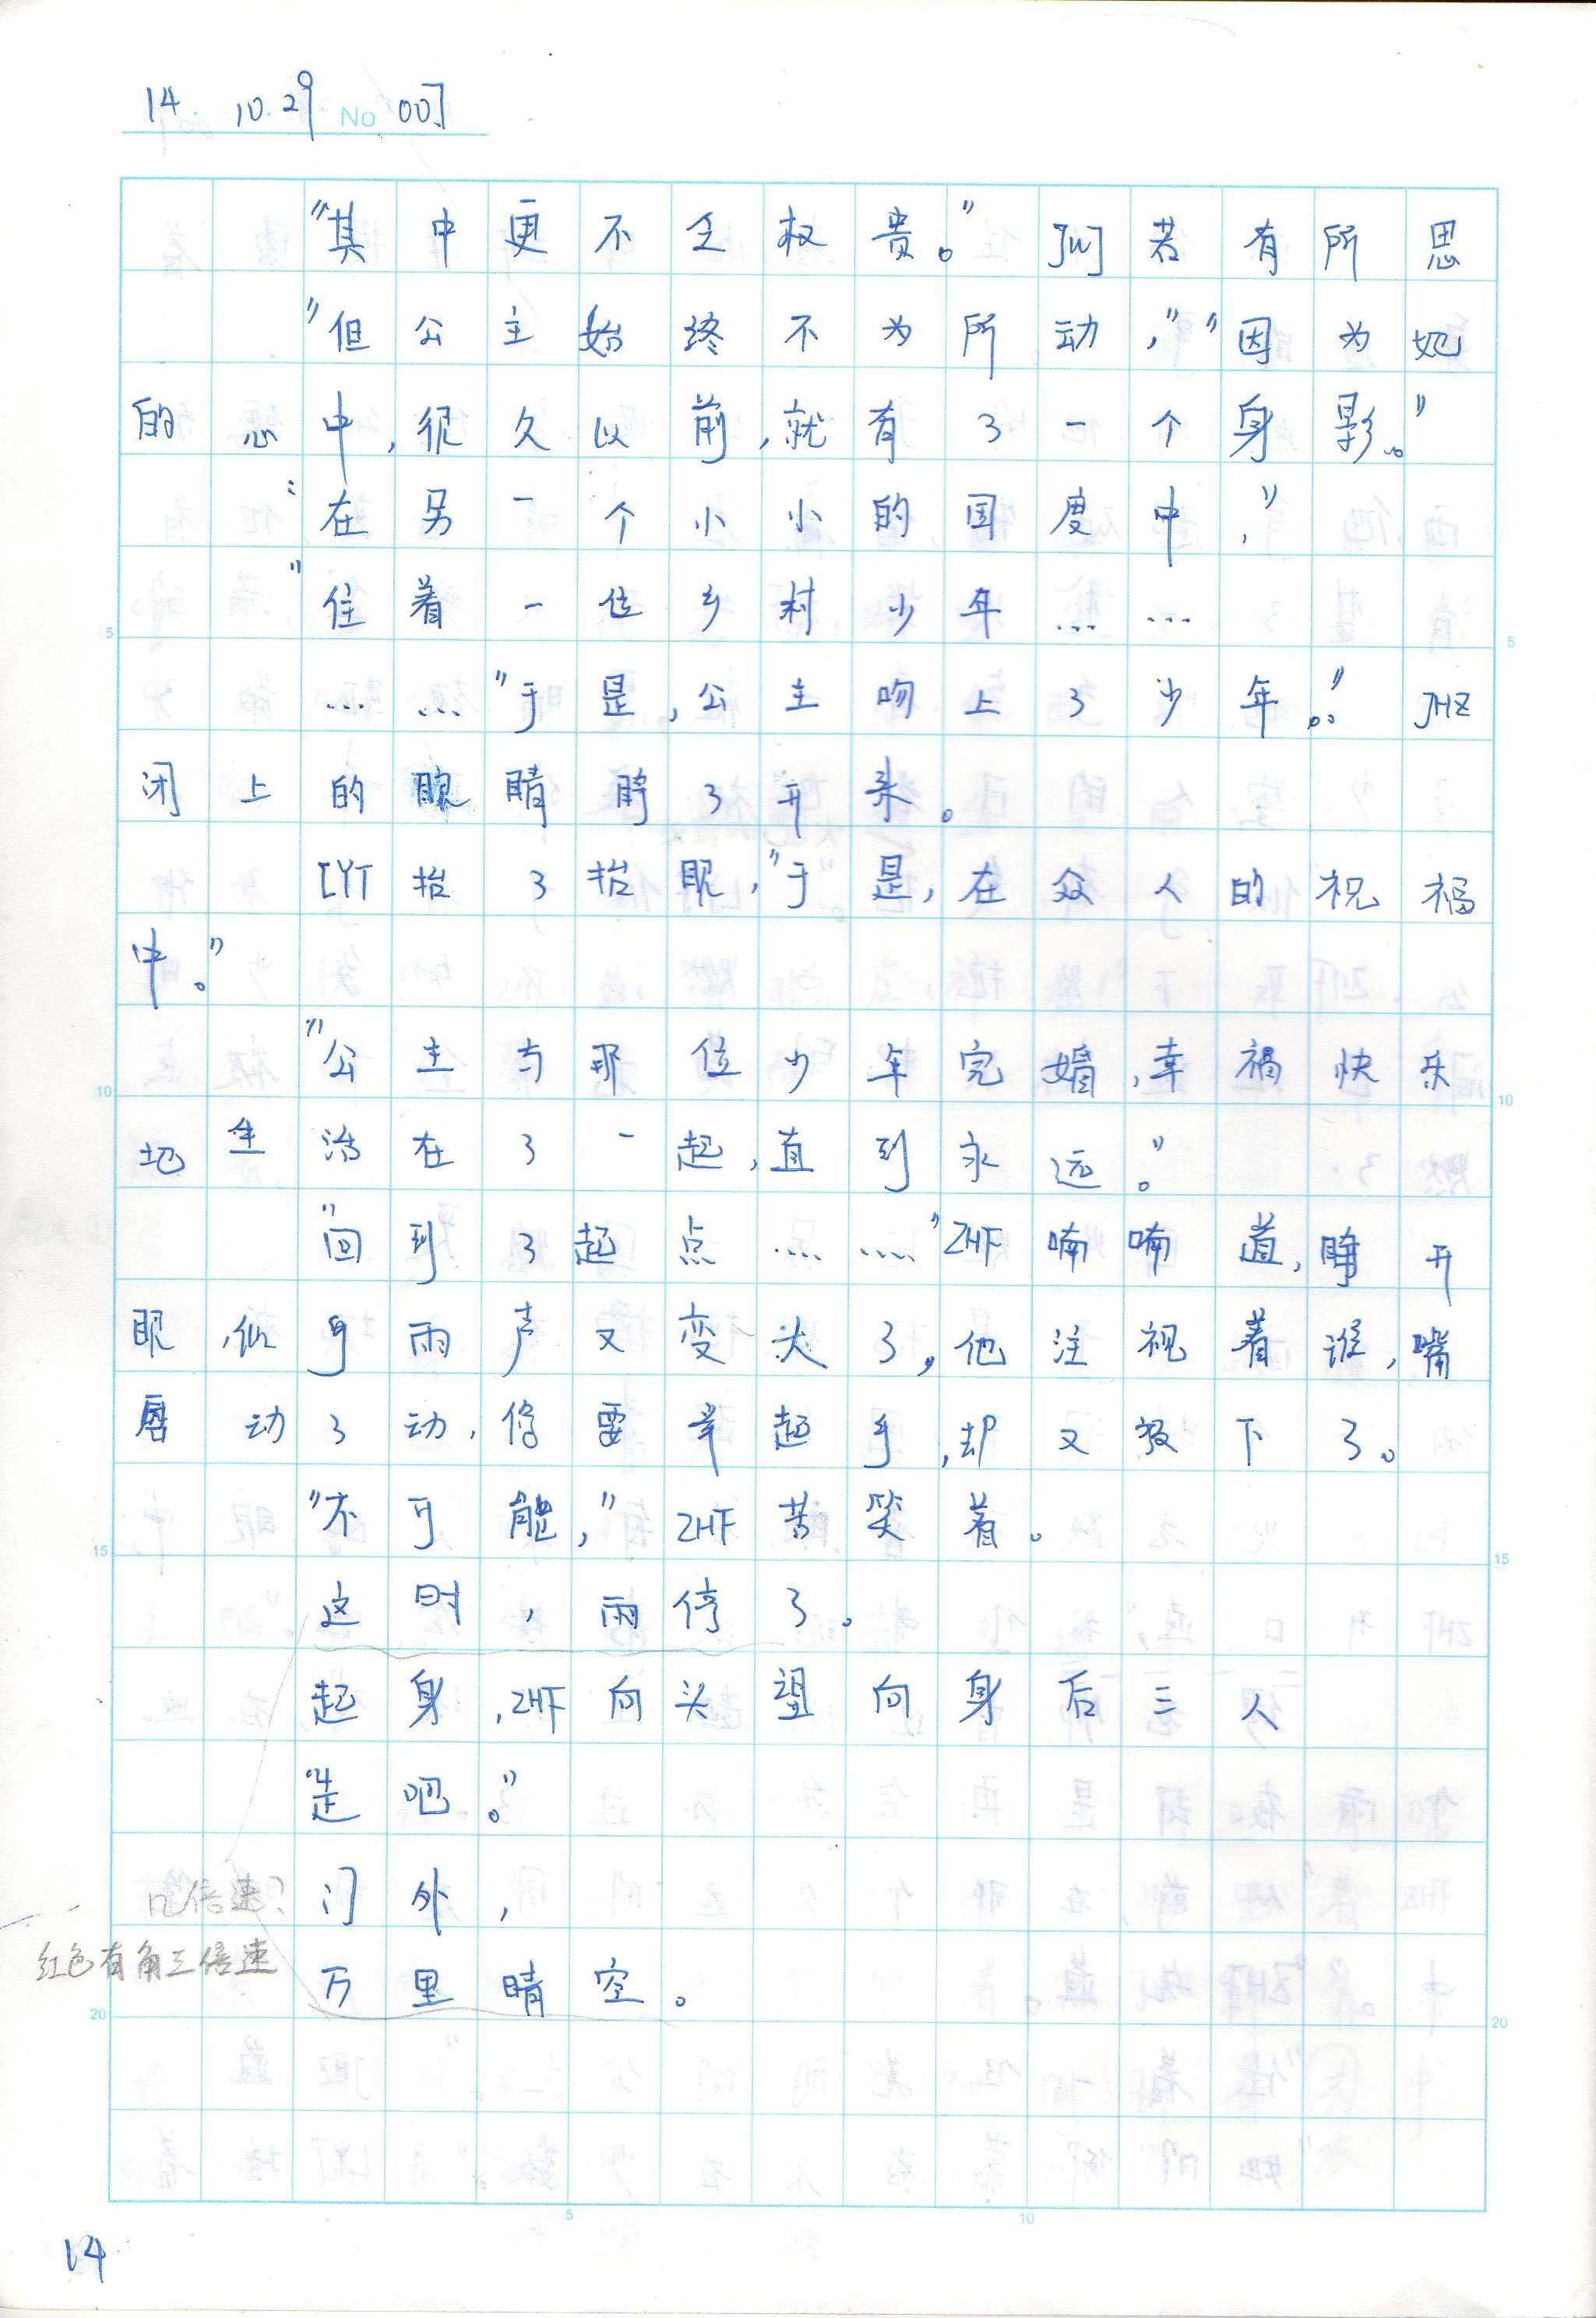 14. 10.29 No 007
"其中更不乏权贵。"JWJ若有所思
"但公主始终不为所动,""因为她
的心中,很久以前,就有了一个身影。"
"在另一个小小的国度中,"
"住着一位乡村少年……
……"于是,公主吻上了少年。"JHZ
闭上的眼睛睁了开来。
LYT抬了抬眼,"于是,在众人的祝福
中。"
"公主与那位少年完婚,幸福快乐
地生活在了一起,直到永远。"
"回到了起点……"ZHF喃喃道,睁开
眼,似乎雨声又变大了,他注视着谁,嘴
唇动了动,像要举起手,却又放下了。
"不可能,"ZHF苦笑着。
这时,雨停了。
起身,ZHF向头望向身后三人
"走吧。"
门外,
几倍速?
红色有角三倍速
万里晴空。
5
10
15
20
5
10
15
20
5
10
14